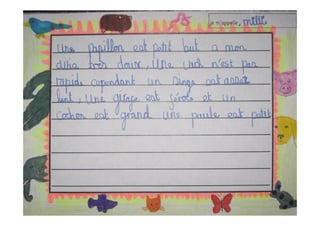 je m'appelle, milli
Une papillon est petit but a mon
avis très doux, Une vach n'est pas
rapide cependant un singe est assez
lent, Une girafe est féroce et un
cochon est grand une poule est petit